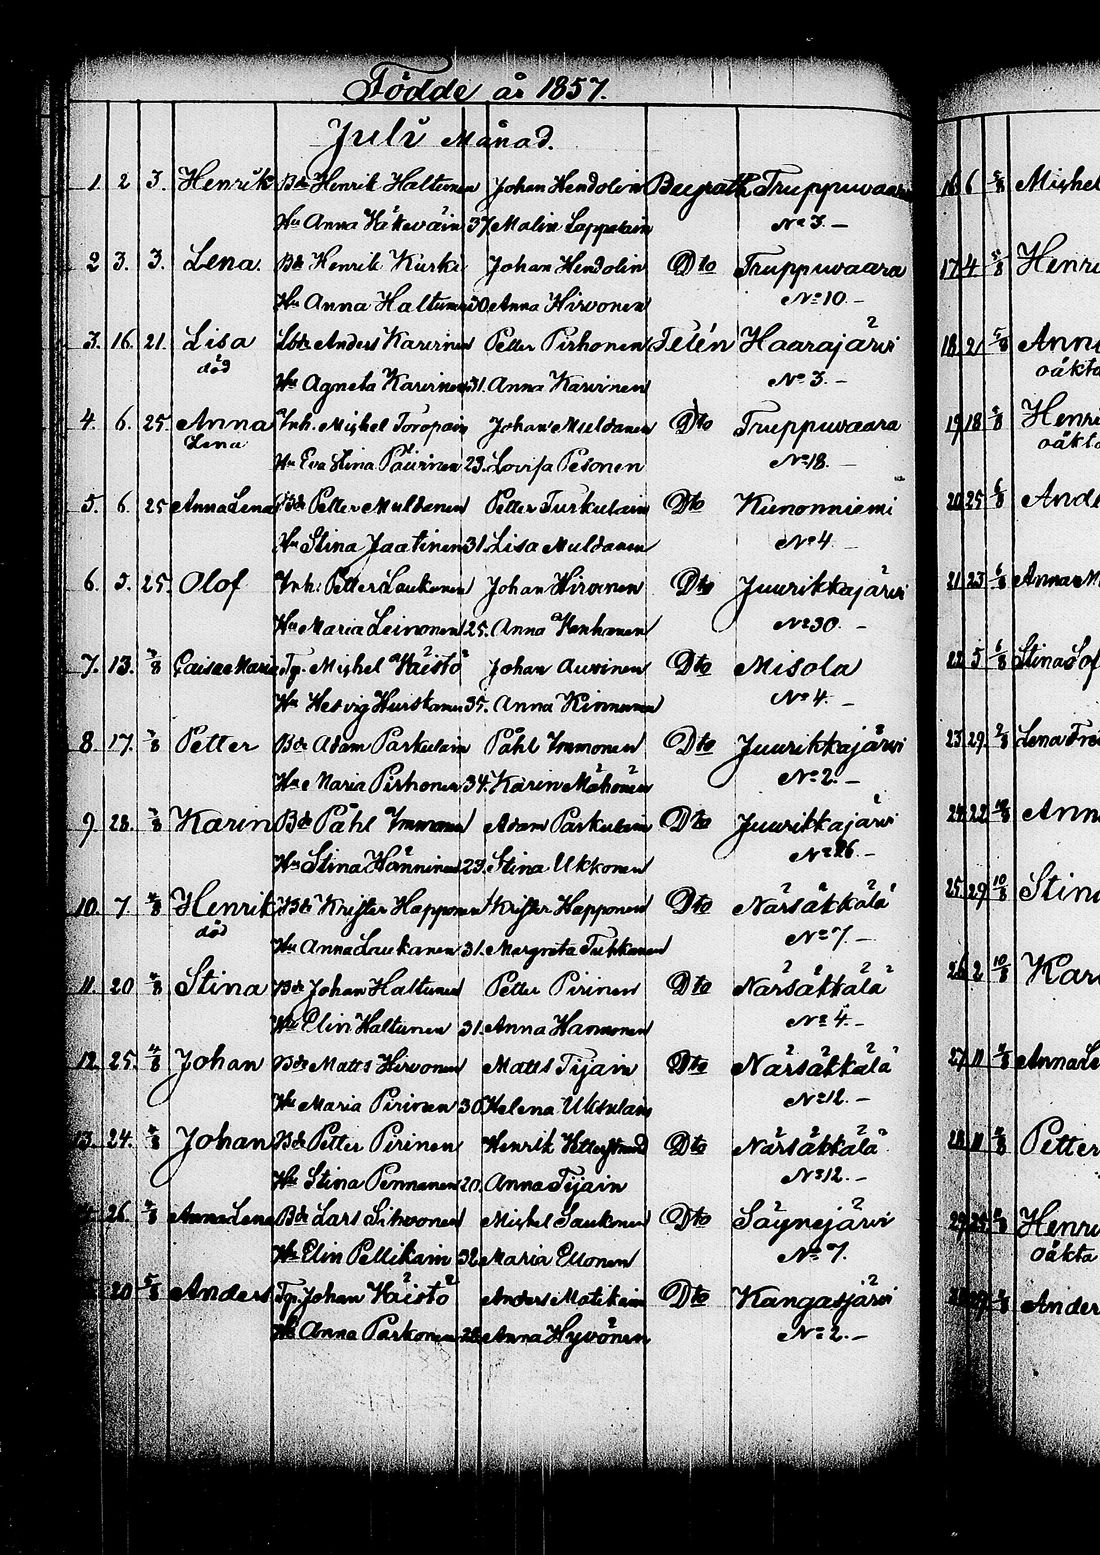 Födde år 1857.
Juli Månad.
1. 2 3. Henrik Bde Henrik Haltunen Johan Hendolin Truppuvaara
Hu Anna Häkeväin 37. Malin Lappalain № 3. —
2 3. 3. Lena. Bde Henrik Kurki Johan Hendolin Dto Truppuvaara
Hu Anna Haltunen 30. Anna Hirvonen № 10. —
3. 16. 21. Lisa Anders Karvinen Petter Pirhonen Haarajärvi
död Hu Agneta Karvinen 31. Anna Karvinen № 3. —
4. 6. 25. Anna Inh. Mighel Toropain Johan Muldanen Dto Truppuvaara
Lena Hu Eva Stina Päivinen 23. Lovisa Pesonen № 18. —
5. 6. 25 Anna Lena Bde Petter Muldanen Petter Turkulain Dto Kunonniemi
Hu Stina Jaatinen 31. Lisa Muldanen № 4. —
6. 5. 25. Olof Inh: Petter Laukanen Johan Hirvonen Dto Juurikkajärvi
Hu Maria Leinonen 25. Anna Henhanen № 30. —
7. 13. Caisa Maria Tp. Mighel Väistö Johan Auvinen Dto Misola
Hu Hesvig Hurskanen 35. Anna Kinnunen № 4. —
8. 17. Petter Bde Adam Parkulain Påhl Immonen Dto Juurikkajärvi
Hu Maria Pirhonen 34. Karin Mähönen № 2. —
9. 28. Karin Bde Påhl Immonen Adam Parkulain Dto Juurikkajärvi
Hu Stina Hänninen 23. Stina Ukkonen № 26. —
10. 7 4/8 Henrik Bde Krister Happonen Krister Happonen Dto Närsäkkälä
död Hu Anna Laukanen 31. Margreta Tukkanen № 7. —
11. 20 4/8 Stina Bde Johan Haltunen Petter Pirinen Dto Närsäkkälä
Hu Elin Haltunen 31. Anna Harmonen № 4. —
12. 25. 4/8 Johan Bde Matts Hirvonen Matts Tijain Dto Närsäkkälä
Hu Maria Pirinen 30. Helena № 12. —
13. 24. 4/8 Johan Bde Petter Pirinen Henrik Dto Närsäkkälä
Hu Stina Pennanen 20. Anna Tijain № 12. —
26. Anna Lena Bde Lars Sihvonen Mighel Laukanen Dto Säynejärvi
Hu Elin Pellikain 32. Maria Ellonen № 7.
20 5/8 Anders Tp. Johan Väistö Anders Matikain Dto Kangasjärvi
Hu Anna Parkonen Anna Hyvönen № 2. —
16 6 5/8 Mighel
17 4 5/8 Henri
18. 21 5/8 Anna
oäkta
19 18 Henri
oäkta
20 25 6/8 Ande
21 23 6/8 Anna M
22 5 6/8 Stina Sof
23 29. Lena Fre
24 22 Anna
25. 29 10/8 Stina
26 2 10/8 Kari
27 11 Anna Le
28 11 Petter
29 25 Henri
oäkta
Ander